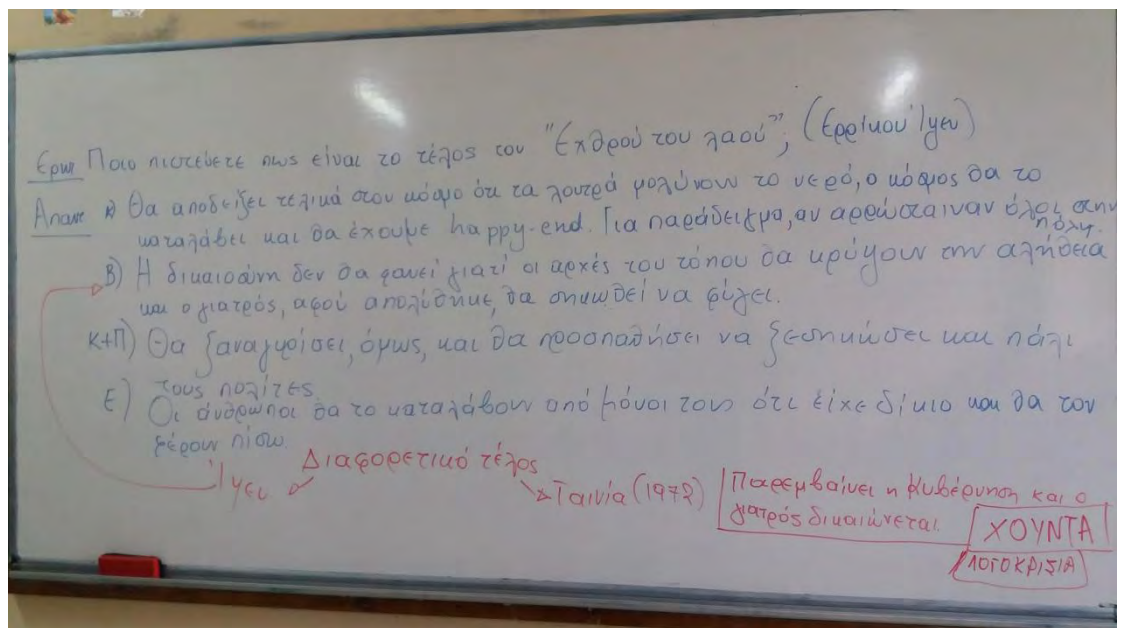 Ερωτ Ποιο πιστεύετε πως είναι το τέλος του "Εχθρού του λαού"; (Ερρίκου Ίψεν)
Απαντ Α) Θα αποδείξει τελικά στον κόσμο ότι τα λουτρά μολύνουν το νερό, ο κόσμος θα το
καταλάβει και θα έχουμε happy-end. Για παράδειγμα, αν αρρώσταιναν όλοι στην
πόλη.
Β) Η δικαιοσύνη δεν θα φανεί γιατί οι αρχές του τόπου θα κρύψουν την αλήθεια
και ο γιατρός, αφού απολύθηκε, θα σηκωθεί να φύγει.
Κ+Π) Θα ξαναγυρίσει, όμως, και θα προσπαθήσει να ξεσηκώσει και πάλι
τους πολίτες
Ε) Οι άνθρωποι θα το καταλάβουν από μόνοι τους ότι είχε δίκιο και θα τον
φέρουν πίσω.
Διαφορετικό τέλος
Ίψεν
Ταινία (1972)
Παρεμβαίνει η κυβέρνηση και ο
γιατρός δικαιώνεται.
ΧΟΥΝΤΑ
ΛΟΓΟΚΡΙΣΙΑ